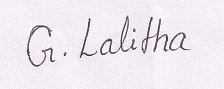 G. Lalitha